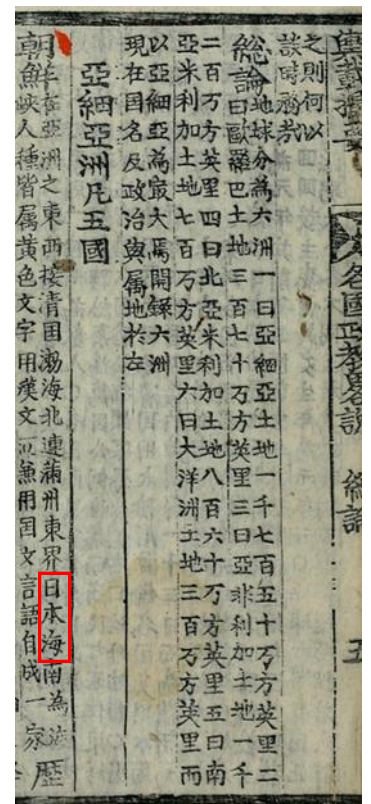 輿載撮要
之則何以
談時務哉
各國政教畧說 總論 五
總論 地球分為六洲一曰亞細亞土地一千七百五十万方英里二
曰歐羅巴土地三百七十万方英里三曰亞非利加土地一千
二百万方英里四曰北亞米利加土地八百六十万方英里五曰南
亞米利加土地七百万方英里六曰大洋洲土地三百万方英里而
以亞細亞為最大焉開錄六洲
現在国名及政治與属地於左
亞細亞洲凡五國
朝鮮 在亞洲之東西接清国渤海北連滿州東界日本海南為
峽人種皆属黄色文字用漢文而兼用国文言語自成一家歷